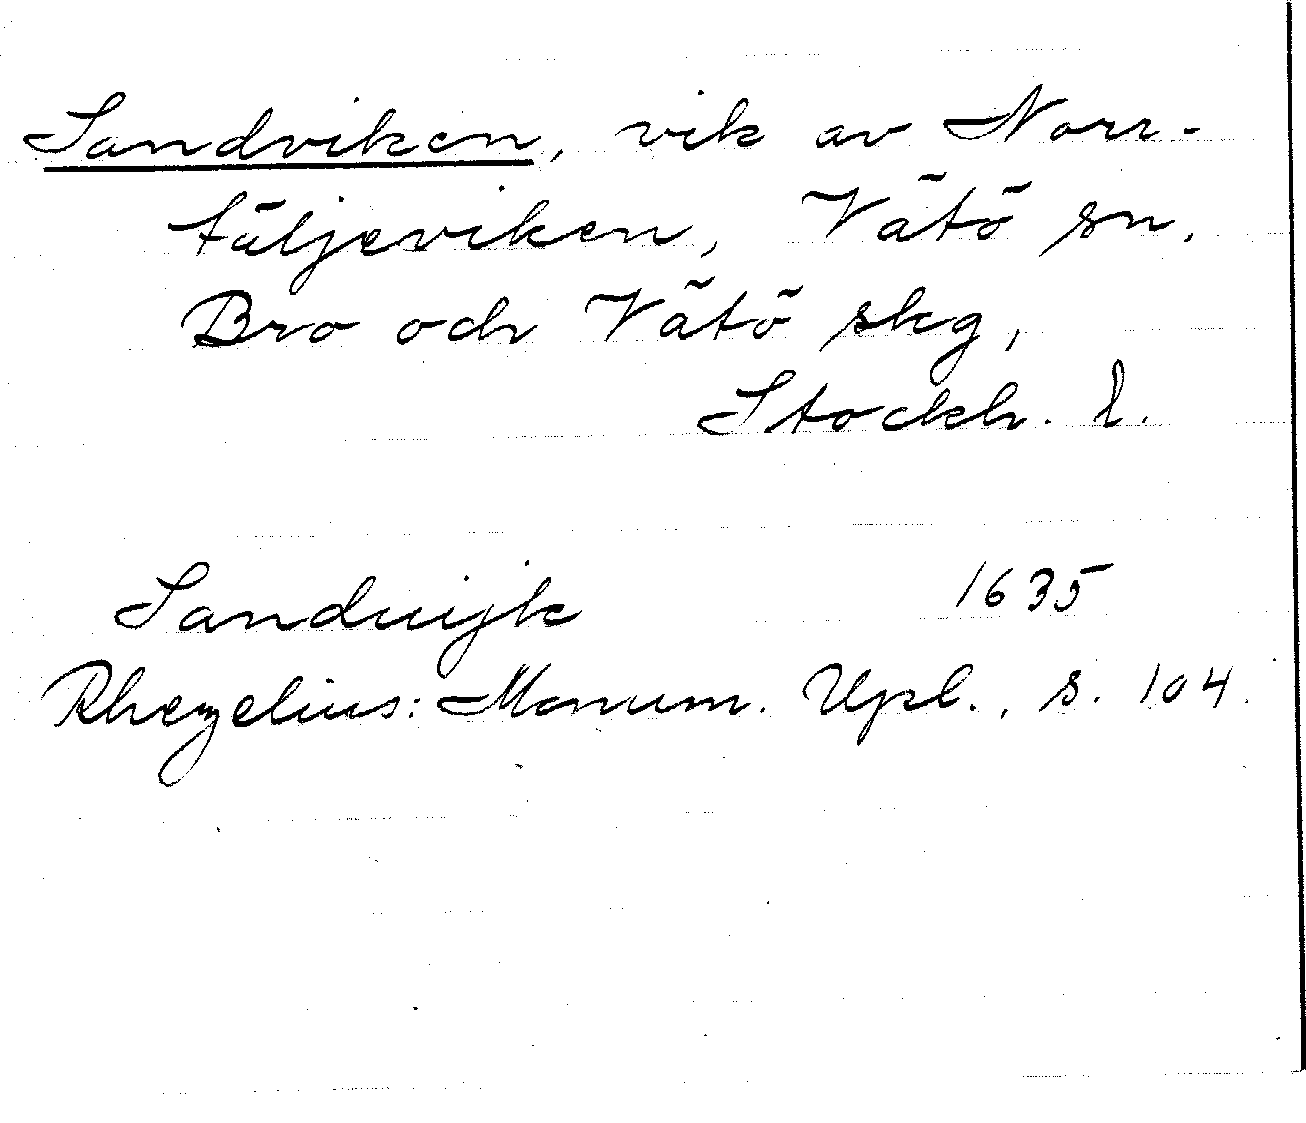 Sandviken, vik av Norr-
täljeviken, Vätö sn.
Bro och Vätö skg,
Stockh. l.
Sanduijk 1635
Rhezelius: Monum. Upl., s. 104.